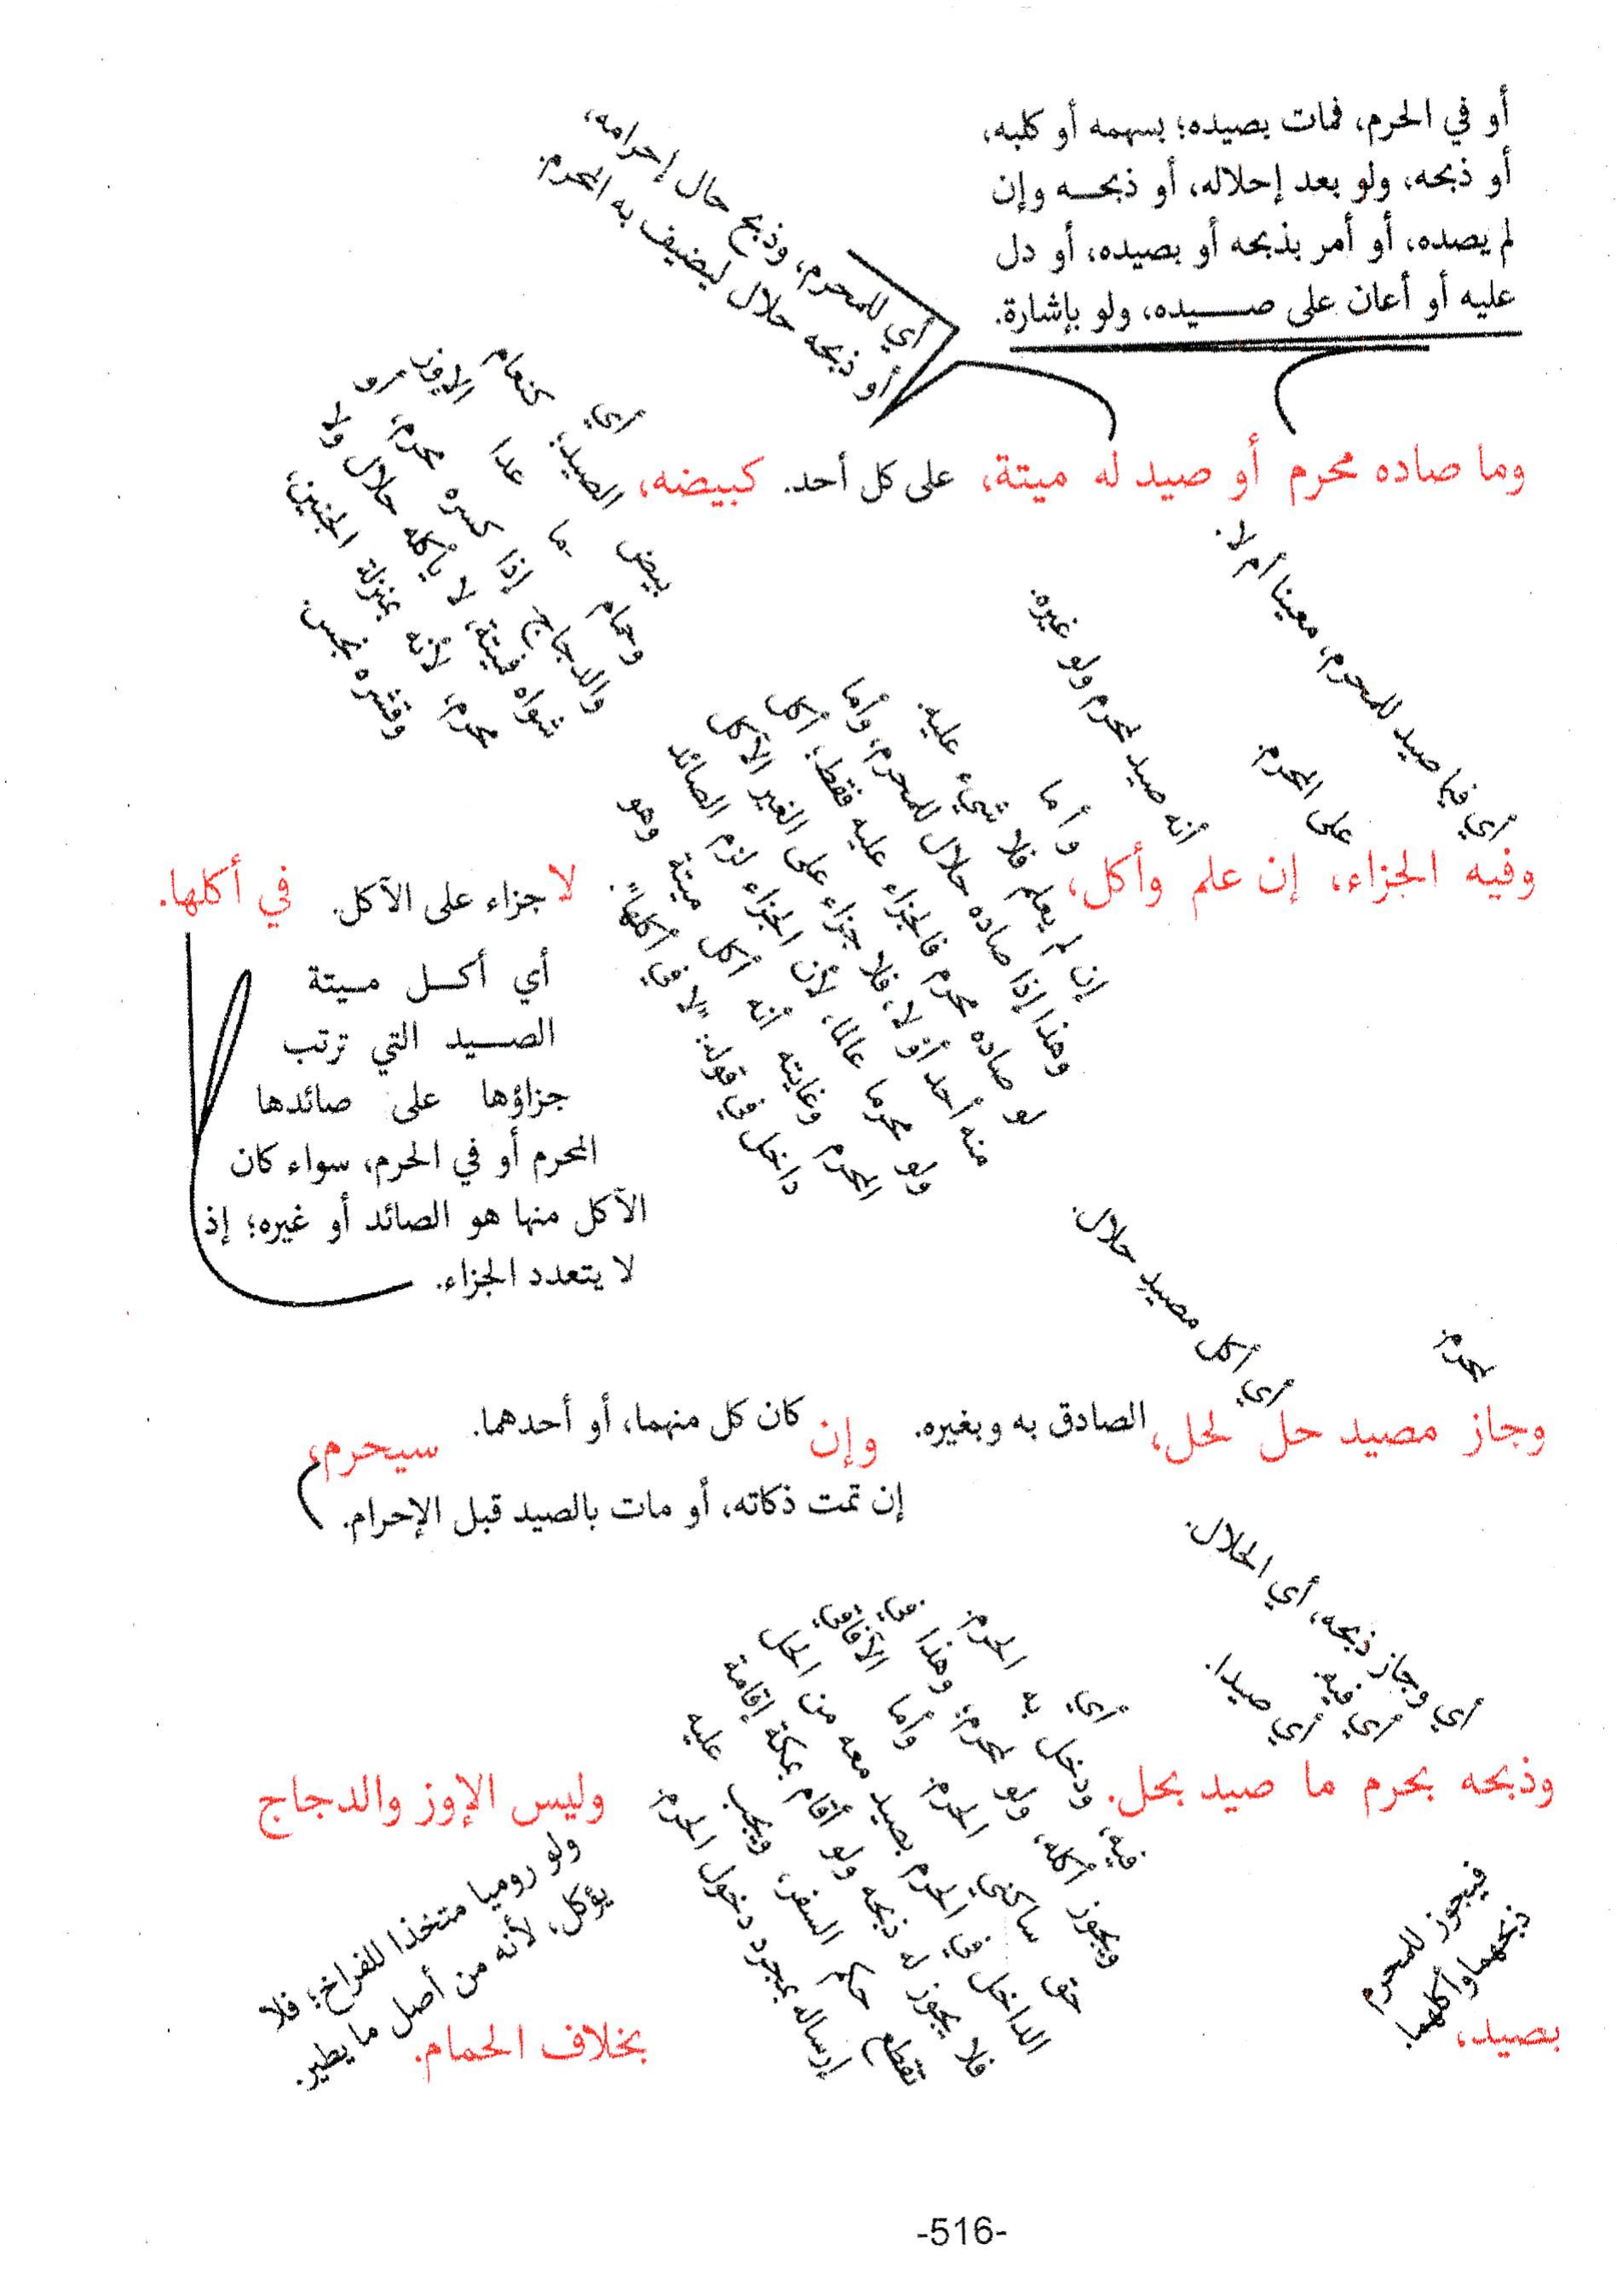 أو في الحرم، فمات بصيده؛ بسهمه أو كلبه،
أو ذبحه، ولو بعد إحلاله، أو ذبحـه وإن
لم يصده، أو أمر بذبحه أو بصيده، أو دل
عليه أو أعان على صـيده، ولو بإشارة.
أي للمحرم، وذبح حال إحرامه،
أو ذبحه حلال ليضيف به المحرم.
وما صاده محرم أو صيد له ميتة، على كل أحد. كبيضه،
أي
بيض الصيد؛ كنعام
وحمام ما عدا الإوز
والدجاج إذا كسره محرم، أو
شواه فميتة، لا يأكله حلال ولا
محرم، لأنه بمنزلة الجنين،
وقشره نجس.
أي فيما صيد للمحرم، معينا أم لا.
على المحرم.
أنه صيد لمحرم ولو غيره.
وفيه الجزاء، إن علم وأكل، لا جزاء على الآكل. في أكلها.
وأما
إن لم يعلم فلا شيء عليه.
وهذا إذا صاده حلال للمحرم، وأما
لو صاده محرم فالجزاء عليه فقط، أكل
منه أحد أو لا، فلا جزاء على الغير الآكل
ولو محرما عالما، لأن الجزاء لزم الصائد
المحرم وغايته أنه أكل ميتة وهو
داخل في قوله: "لا في أكلها".
أي أكـل مـيتة
الصـيد التي ترتب
جزاؤها على صائدها
المحرم أو في الحرم، سواء كان
الآكل منها هو الصائد أو غيره؛ إذ
لا يتعدد الجزاء.
محرم.
أي أكل مصيدِ حلال.
وجاز مصيد حل لحل، الصادق به وبغيره. وإن كان كل منهما، أو أحدهما. سيحرم،
إن تمت ذكاته، أو مات بالصيد قبل الإحرام.
أي وجاز ذبحه، أي الحلال.
أي فيه.
أي صيدا.
وذبحه بحرم ما صيد بحل. وليس الإوز والدجاج
أي
فيه، ودخل به الحرم.
ويجوز أكله، ولو لمحرم؛ وهذا في
حق ساكني الحرم. وأما الآفاقي
الداخل في الحرم بصيد معه من الحل
فلا يجوز له ذبحه ولو أقام بمكة إقامة
تقطع حكم السفر، ويجب عليه
إرساله بمجرد دخول الحرم
فيجوز للمحرم
ذبحهما وأكلهما.
ولو روميا متخذا للفراخ؛ فلا
يؤكل، لأنه من أصل ما يطير.
بصيد، بخلاف الحمام.
-516-